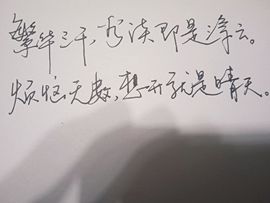 繁华三千,看淡即是浮云。
烦恼无数,想开就是晴天。